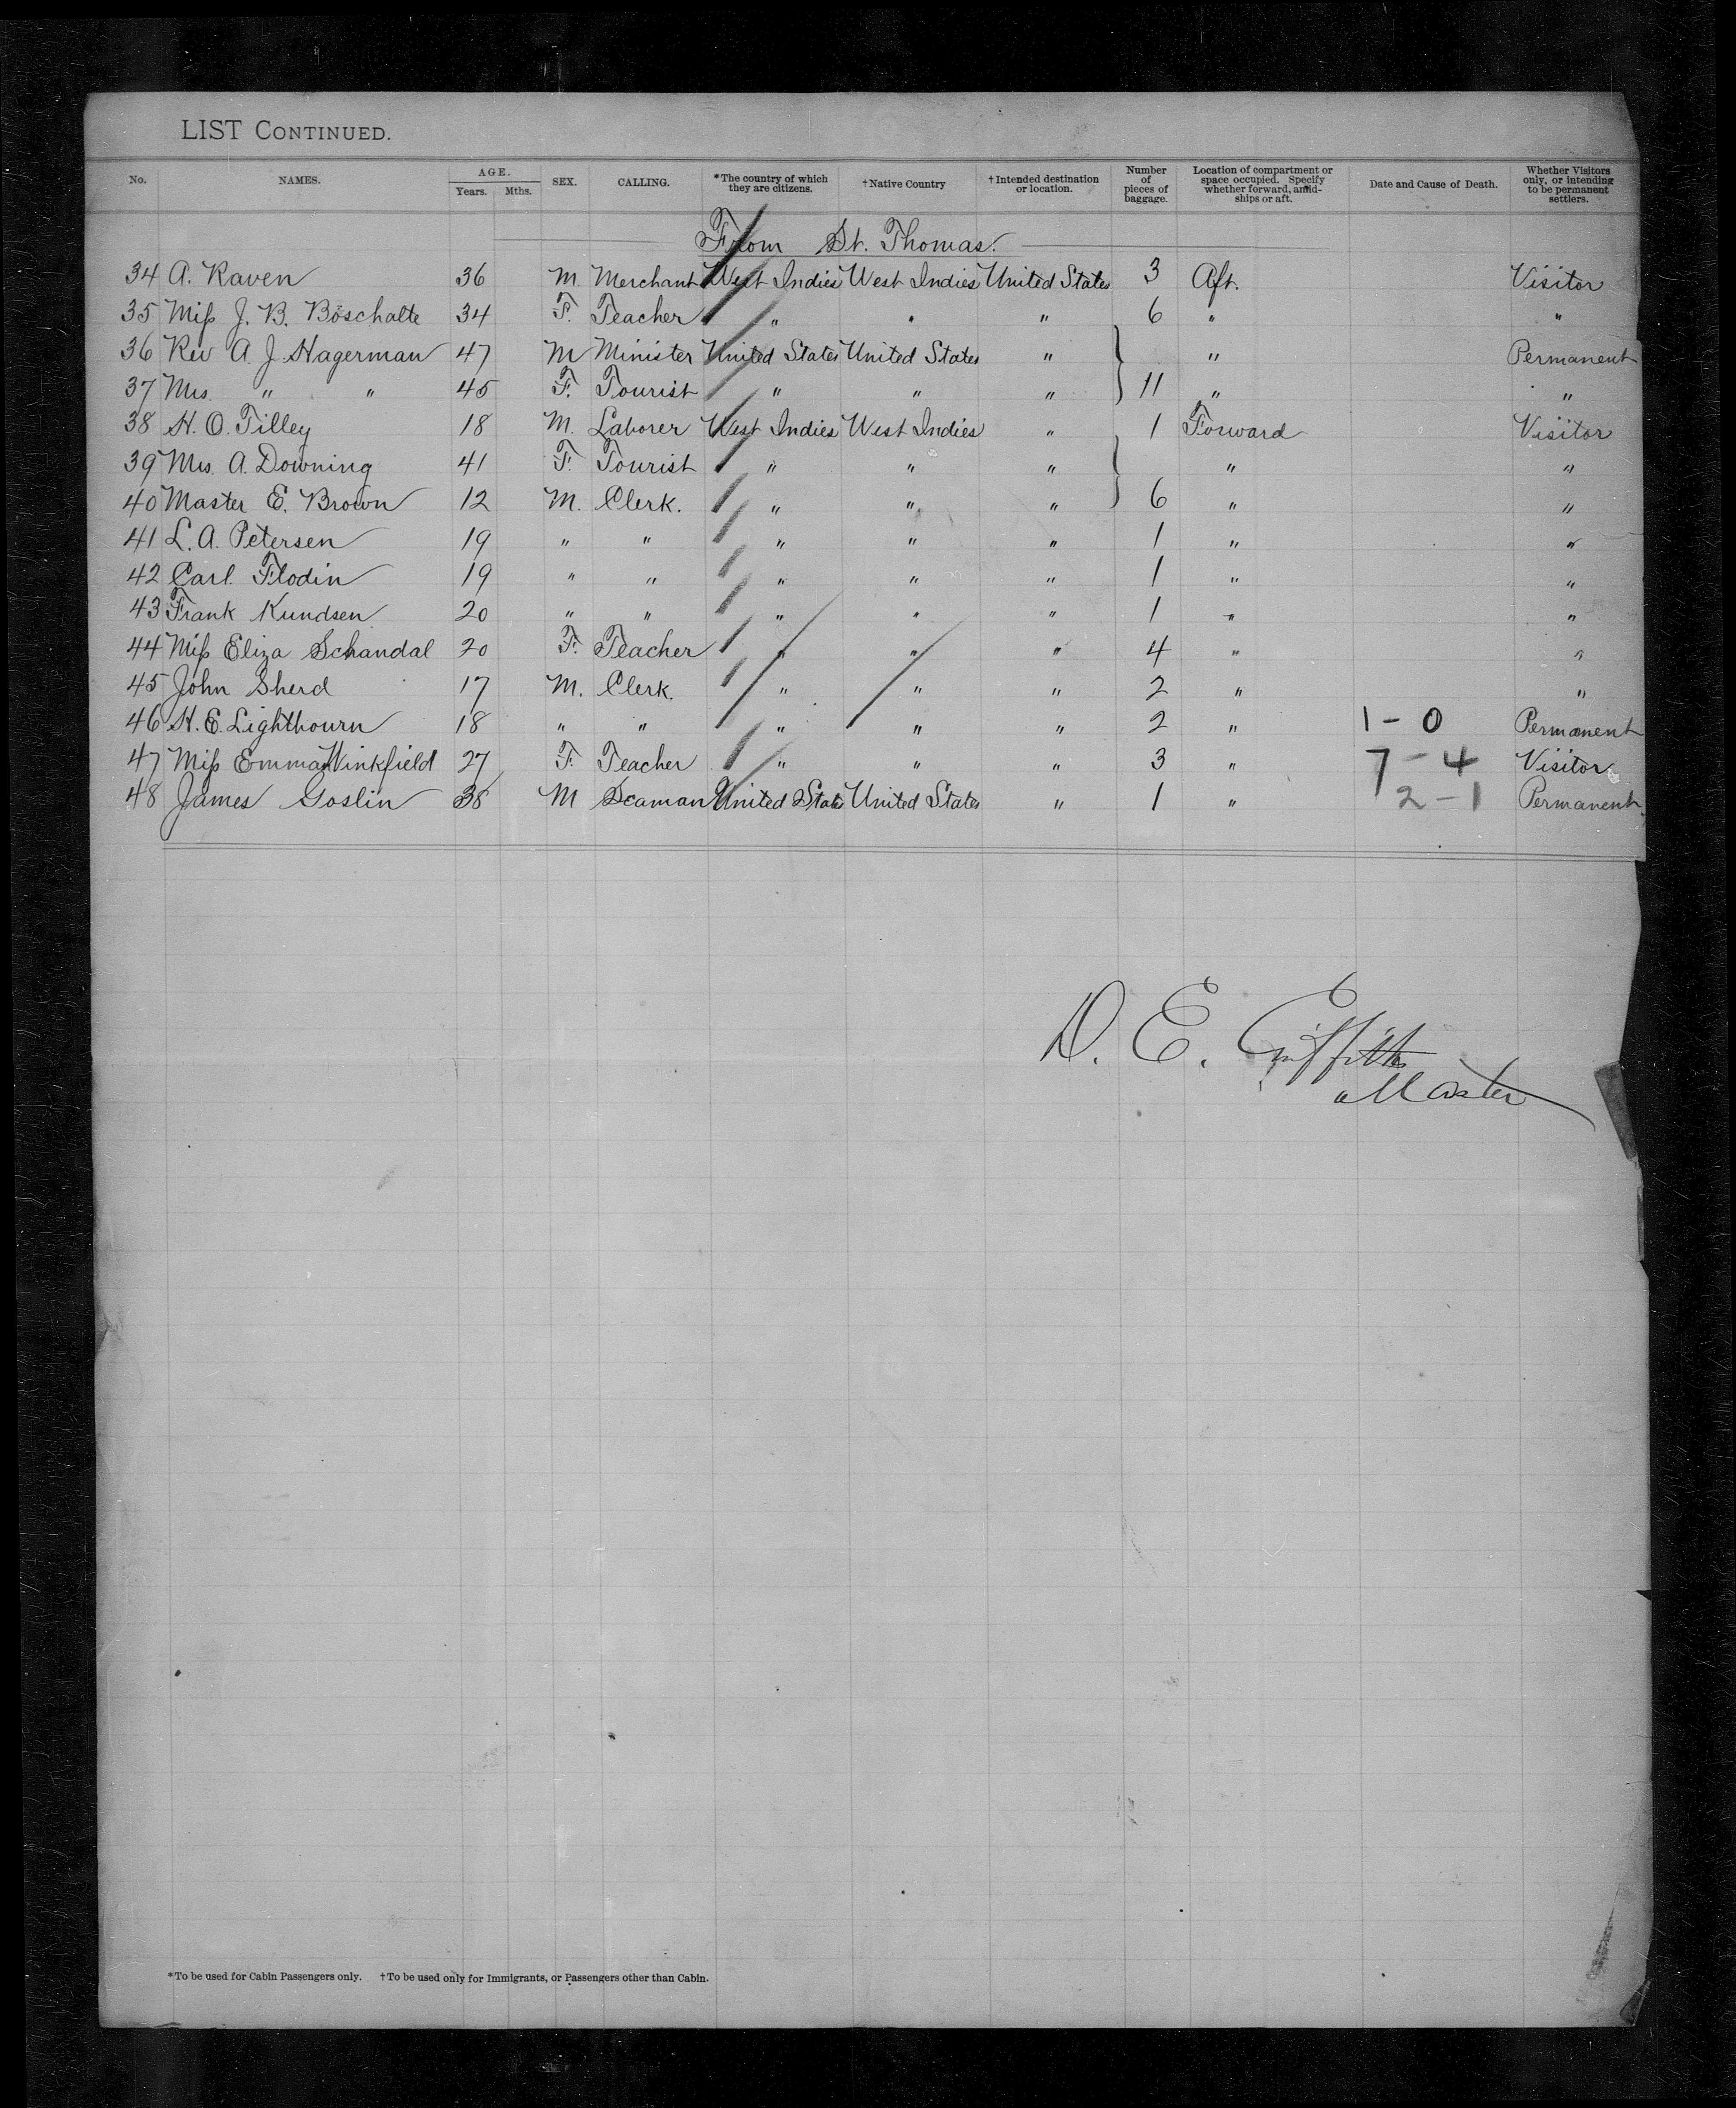 LIST CONTINUED.
No. NAMES. AGE. Years. Mths. SEX. CALLING. *The country of which they are citizens. †Native Country †Intended destination or location. Number of pieces of baggage. Location of compartment or space occupied. Specify whether forward, amid-ships or aft. Date and Cause of Death. Whether Visitors only, or intending to be permanent settlers.
From St. Thomas.
34 A. Raven 36 M. Merchant West Indies West Indies United States 3 Aft. Visitor
35 Miss J. B. Böschalte 34 F. Teacher " " " 6 " "
36 Rev A. J. Hagerman 47 M Minister United States United States " " Permanent
37 Mrs. " " 45 F. Tourist " " " 11 " "
38 H. O. Tilley 18 M. Laborer West Indies West Indies " 1 Forward Visitor
39 Mrs. A. Downing 41 F. Tourist " " " " "
40 Master E. Brown 12 M. Clerk. " " " 6 " "
41 L. A. Petersen 19 " " " " " 1 " "
42 Carl Flodin 19 " " " " " 1 " "
43 Frank Kundsen 20 " " " " " 1 " "
44 Miss Eliza Schandal 20 F. Teacher " " " 4 " "
45 John Sherd 17 M. Clerk. " " " 2 " "
46 H. E. Lightbourn 18 " " " " " 2 " 1 - 0 Permanent
47 Miss Emma Winkfield 27 F. Teacher " " " 3 " 7 - 4 Visitor
48 James Goslin 38 M Seaman United States United States " 1 " 2 - 1 Permanent
D. E. Griffiths
Master
*To be used for Cabin Passengers only. †To be used only for Immigrants, or Passengers other than Cabin.